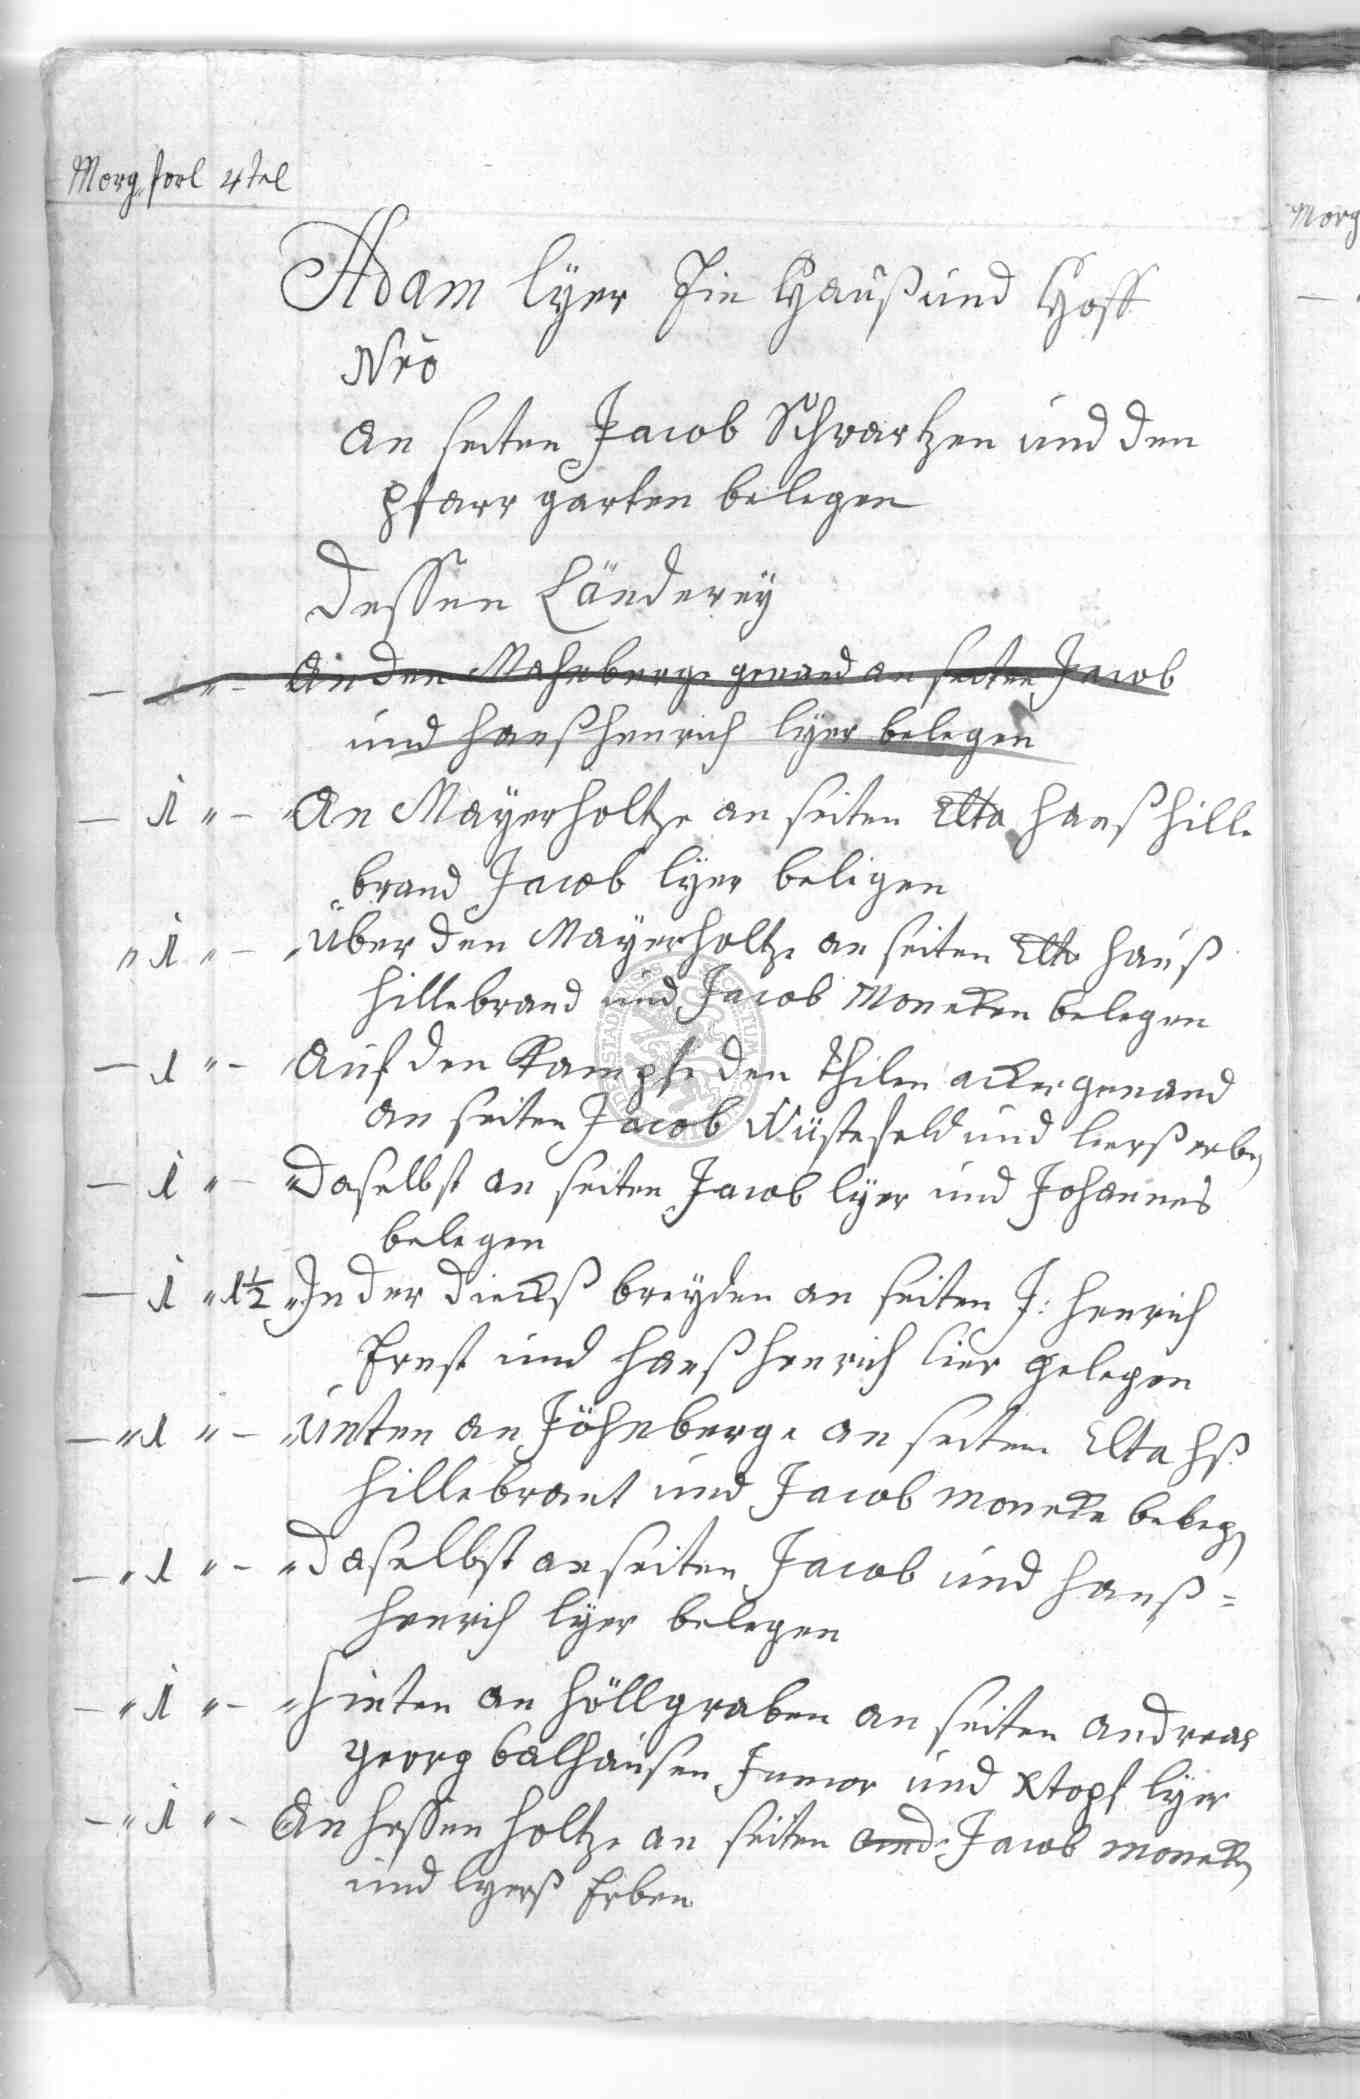 Morg. forl 4tel
Adam lÿer Ein Hauß und Hoff
Nrō
an seiten Jacob Schwartzen und den
pfarr garten belegen
Dessen Länderey
— " — An den Mahnberge genand an seiten Jacob
und hanß henrich lÿer belegen
— 1 " — "An Mayerholtze an seiten Elta hanß hille
brand Jacob lÿer beligen
" 1 " — "Über den Mayerholtze an seiten Elta hanß
hillebrand und Jacob Moneken belegen
— 1 " — Auf den Kampfe den Thilen acker genand
an seiten Jacob Wüstefeld und lierß erben
— 1 " — "Daselbst an seiten Jacob lÿer und Johannes
belegen
— 1 " 1½ "In der Diecks breyden an seiten J: henrich
Ernst und hanß henrich lier gelegen
— " 1 " — "Unten an Jöhnberge an seiten Elta hß
hillebrant und Jacob moneke beleg
— " 1 " — "Daselbst an seiten Jacob und hanß=
henrich lyer belegen
— " 1 " — "hinten an höllgraben an seiten andreas
georg balhausen Junior und Xtopf lÿer
— " 1 " — An hessen holtze an seiten and Jacob moneke
und lyerß Erben
Morg